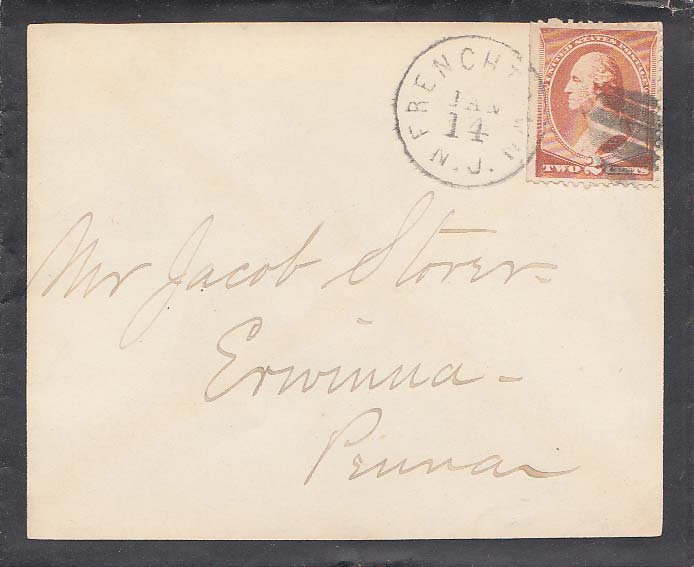 UNITED STATES POSTAGE
FRENCHTOWN
JAN
14
N.J.
TWO 2 CENTS
Mr Jacob Storer
Erwinna
Penna